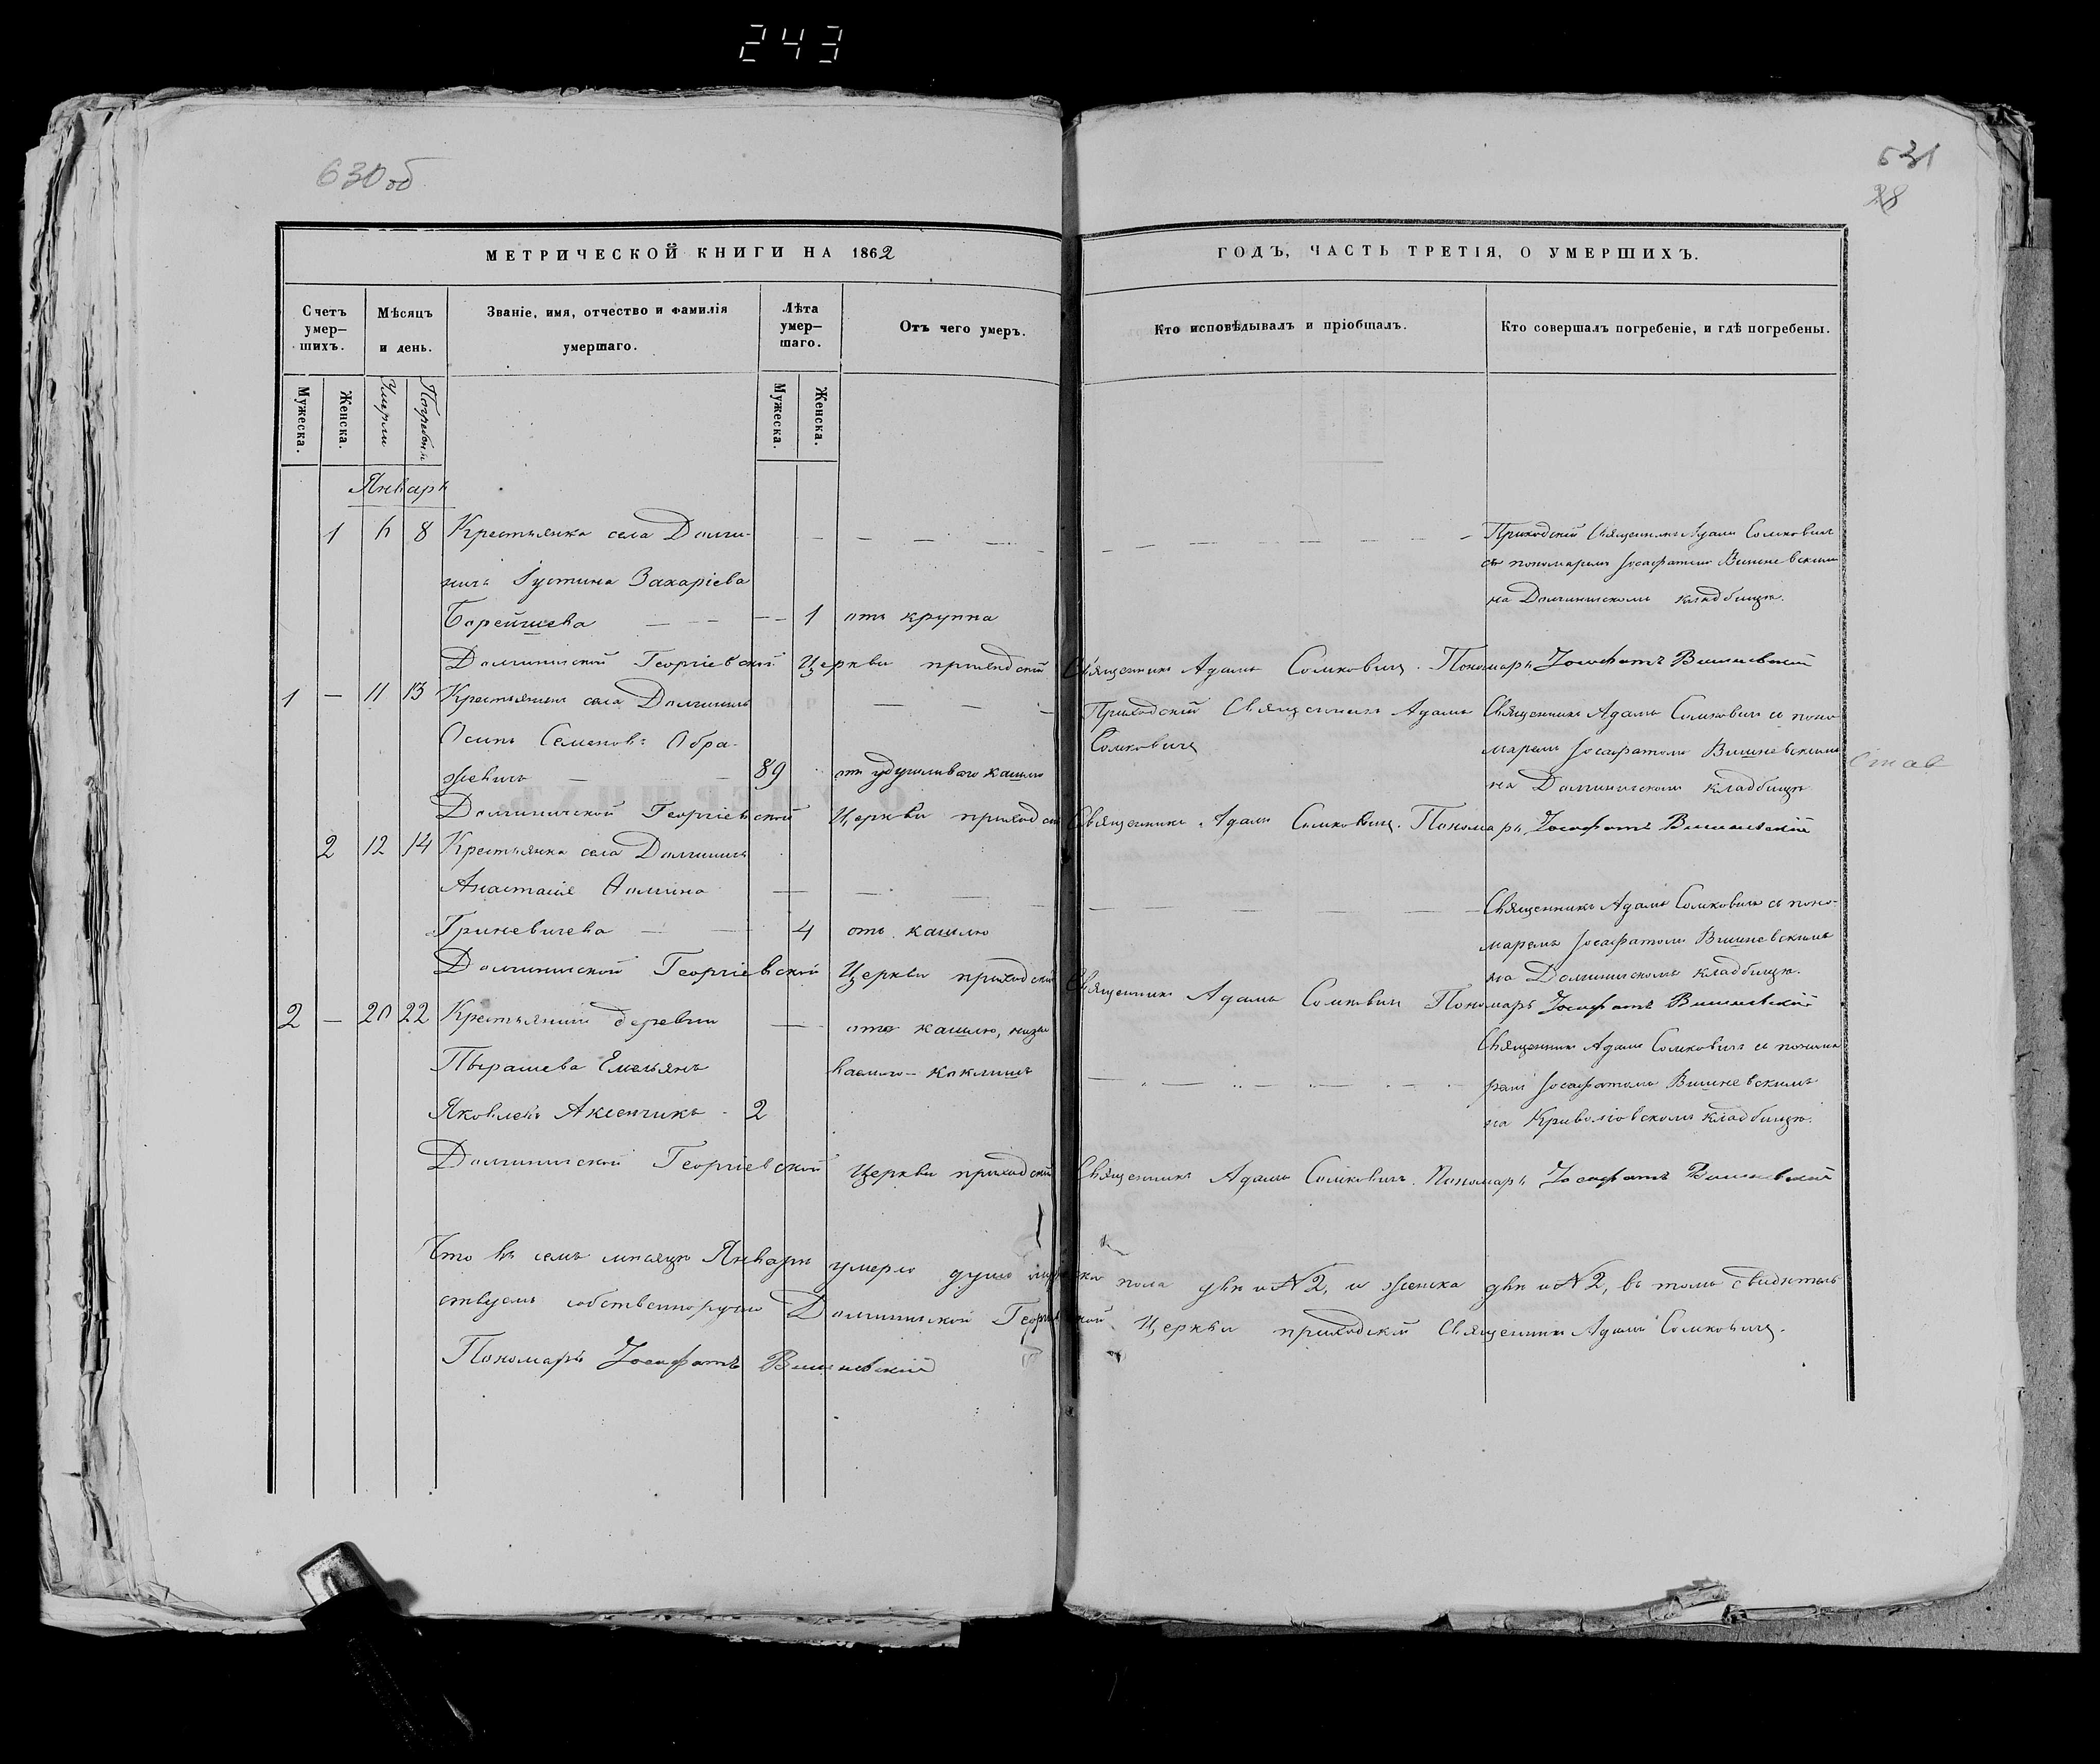 243
630 об
631
28
МЕТРИЧЕСКОЙ КНИГИ НА 1862
ГОДЪ, ЧАСТЬ ТРЕТІЯ, О УМЕРШИХЪ.
Счетъ умер-шихъ.
Мѣсяцъ и день.
Званіе, имя, отчество и фамилія умершаго.
Лѣта умер-шаго.
Отъ чего умеръ.
Кто исповѣдывалъ и пріобщалъ.
Кто совершалъ погребеніе, и гдѣ погребены.
Мужеска.
Женска.
Умерли
Погребены
Мужеска.
Женска.
Январь
1 6 8 Крестьянка села Долги-
ничь Іустина Захаріева
Борейшева 1 отъ крупна
Приходскій Священникъ Адамъ Сомковичъ
съ пономаремъ Іосафатомъ Вишневскимъ
на Долгиничскомъ кладбищѣ.
Долгиничской Георгіевской Церкви приходскій Священникъ Адамъ Сомковичъ. Пономарь Іосафатъ Вишневскій
1 — 11 13 Крестьянинъ села Долгиничь
Осипъ Семеновъ Абра-
жевичъ 89 отъ удушливаго кашлю
Приходскій Священникъ Адамъ
Сомковичъ
Священникъ Адамъ Сомковичъ съ поно-
маремъ Іосафатомъ Вишневскимъ
на Долгиничскомъ кладбищѣ
Долгиничской Георгіевской Церкви приходскій Священникъ Адамъ Сомковичъ. Пономарь Іосафатъ Вишневскій
2 12 14 Крестьянка села Долгиничь
Анастасія Ѳомина
Гриневичева 4 отъ кашлю
Священникъ Адамъ Сомковичъ съ поно-
маремъ Іосафатомъ Вишневскимъ
на Долгиничскомъ кладбищѣ.
Долгиничской Георгіевской Церкви приходскій Священникъ Адамъ Сомковичъ Пономарь Іосафатъ Вишневскій
2 — 20 22 Крестьянинъ деревни отъ кашлю, назы
Пырашева Емельянъ ваемаго коклишъ
Яковлевъ Аксенчикъ 2
Священникъ Адамъ Сомковичъ съ понома
ремъ Іосафатомъ Вишневскимъ
на кладбищѣ.
Долгиничской Георгіевской Церкви приходскій Священникъ Адамъ Сомковичъ. Пономарь Іосафатъ Вишневскій
Что въ семъ мѣсяцѣ Январѣ умерло душъ мужеска пола двѣ и № 2, и женска двѣ и № 2, въ томъ свидѣтель
ствуемъ собственноручно Долгиничской Георгіевской Церкви приходскій Священникъ Адамъ Сомковичъ.
Пономарь Іосафатъ Вишневскій